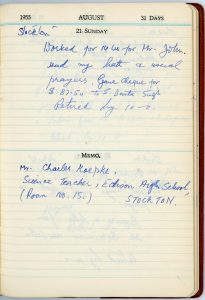 1955 AUGUST 31 DAYS
Stockton 21. SUNDAY
Worked for 10 hrs for Mr. John.
and my bath & usual
prayers. Gave cheque for
$ 87.50 to S. Santa Singh
Retired by 10-0.
MEMO.
Mr. Charles Koepke.
Science Teacher, Edison High School,
(Room No. 15.) STOCKTON.